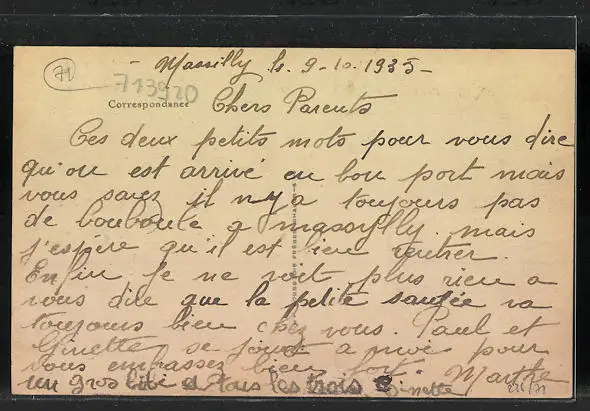 71
- Massilly le 9-10.1935-
713920
Correspondance
Chers Parents
Ces deux petits mots pour vous dire
qu'on est arrivé en bon port mais
vous savez il n'y a toujours pas
de bouboule a massylly. mais
j'espère qu'il est bien rentrer.
Enfin je ne voit plus rien a
vous dire que la petite santée va
toujours bien chez vous. Paul et
Ginette se joint a moi pour
vous embrassez bien fort. Marthe
un gros bibi a tous les trois Ginette